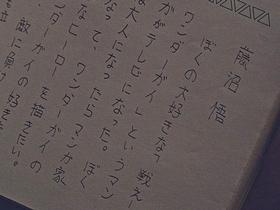 藤沼 悟
ぼくの大好きな「戦え
ワンダーガイ」というマン
ガがテレビになった。ぼく
大人になったらマンガ家
なって、ワンダーガイの
ヒーローを描きたい。
ンダーガイの好き
敵に負け